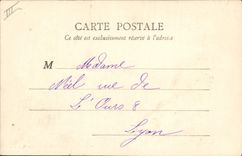 III
CARTE POSTALE
Ce côté est exclusivement réservé à l'adresse
M Madame
Niel rue de
L'Ours 8
Lyon